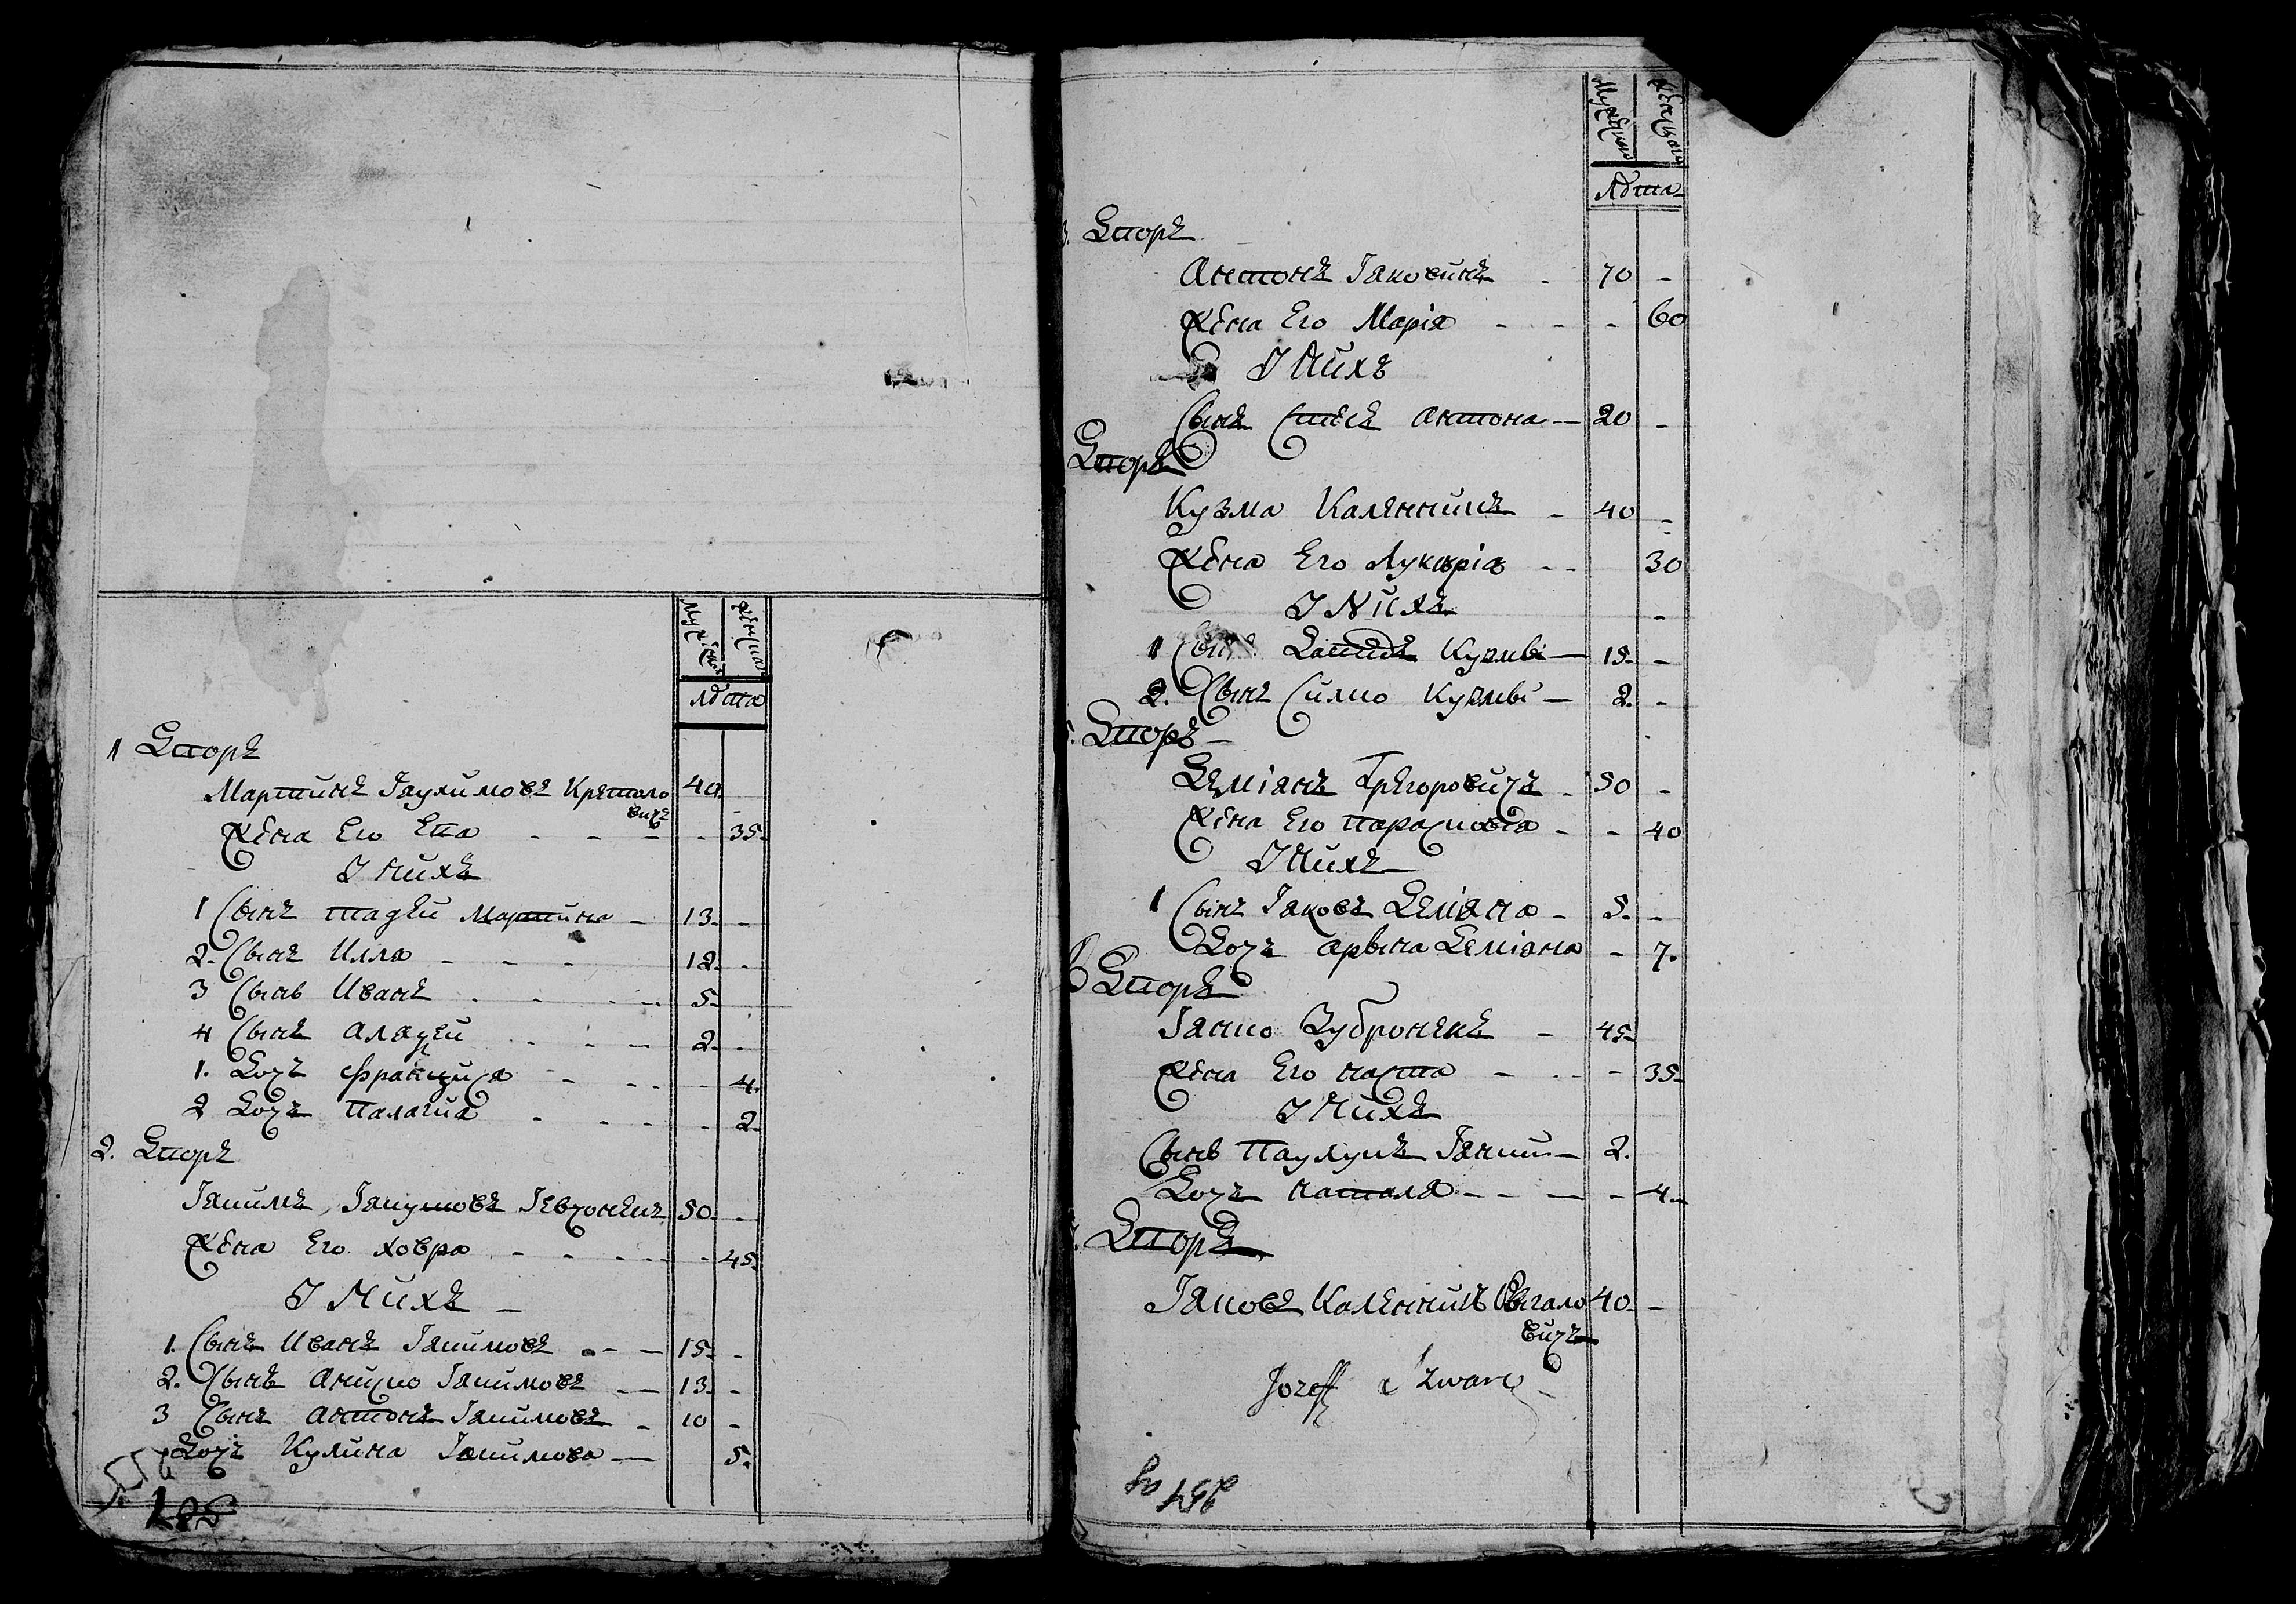 Мужеска
Женска
Лѣта
1 Дворъ
Мартинъ Іаухимовъ Кретало
вичъ 40.
Жена Его Ева - - - - 35.
У Нихъ
1 Сынъ Тадей Мартина - 13. -
2. Сынъ Илля - - - 12. -
3 Сынъ Иванъ . - - - 5.
4 Сынъ Алѯей - - - 2. -
1. Дочъ Францишка - - - - 4.
2 Дочъ Палагиа - - - - 2.
2. Дворъ
Іакимъ Іакимовъ 50. -
Жена Его Ховра - - - - 45.
У Нихъ -
1. Сынъ Иванъ Іакимовъ - - 15. -
2. Сынъ Аниско Іакимовъ - 13. -
3 Сынъ Антонъ Іакимовъ - 10 -
Дочъ Кулина Іакимова - 5.
Мужеска
Женска
Лѣта
3. Дворъ
Антонъ Іаковинъ - 70 -
Жена Его Марія - - - 60
У Нихъ
Сынъ Стесь Антона - 20 -
Дворъ
Кузма Каленникъ - 40 -
Жена Его Лукерія - - 30
У Нихъ -
1 Сынъ Кузмы - 15. -
2. Сынъ Симко Кузмы - 2. -
5. Дворъ -
Деміанъ Грегоровичъ - 50 -
Жена Его Парасковіа - - 40
У Нихъ -
1 Сынъ Іаковъ Деміана - 5. -
Дочъ Арына Деміана - 7.
6 Дворъ
Іанко Зубронекъ - 45.
Жена Его Наста - - - 35.
У Нихъ
Сынъ Паулукъ Іанки - 2.
Дочъ Наталя - - - - 4.
Дворъ
Іаковъ Каленникъ 40. -
вичъ
Jozeff